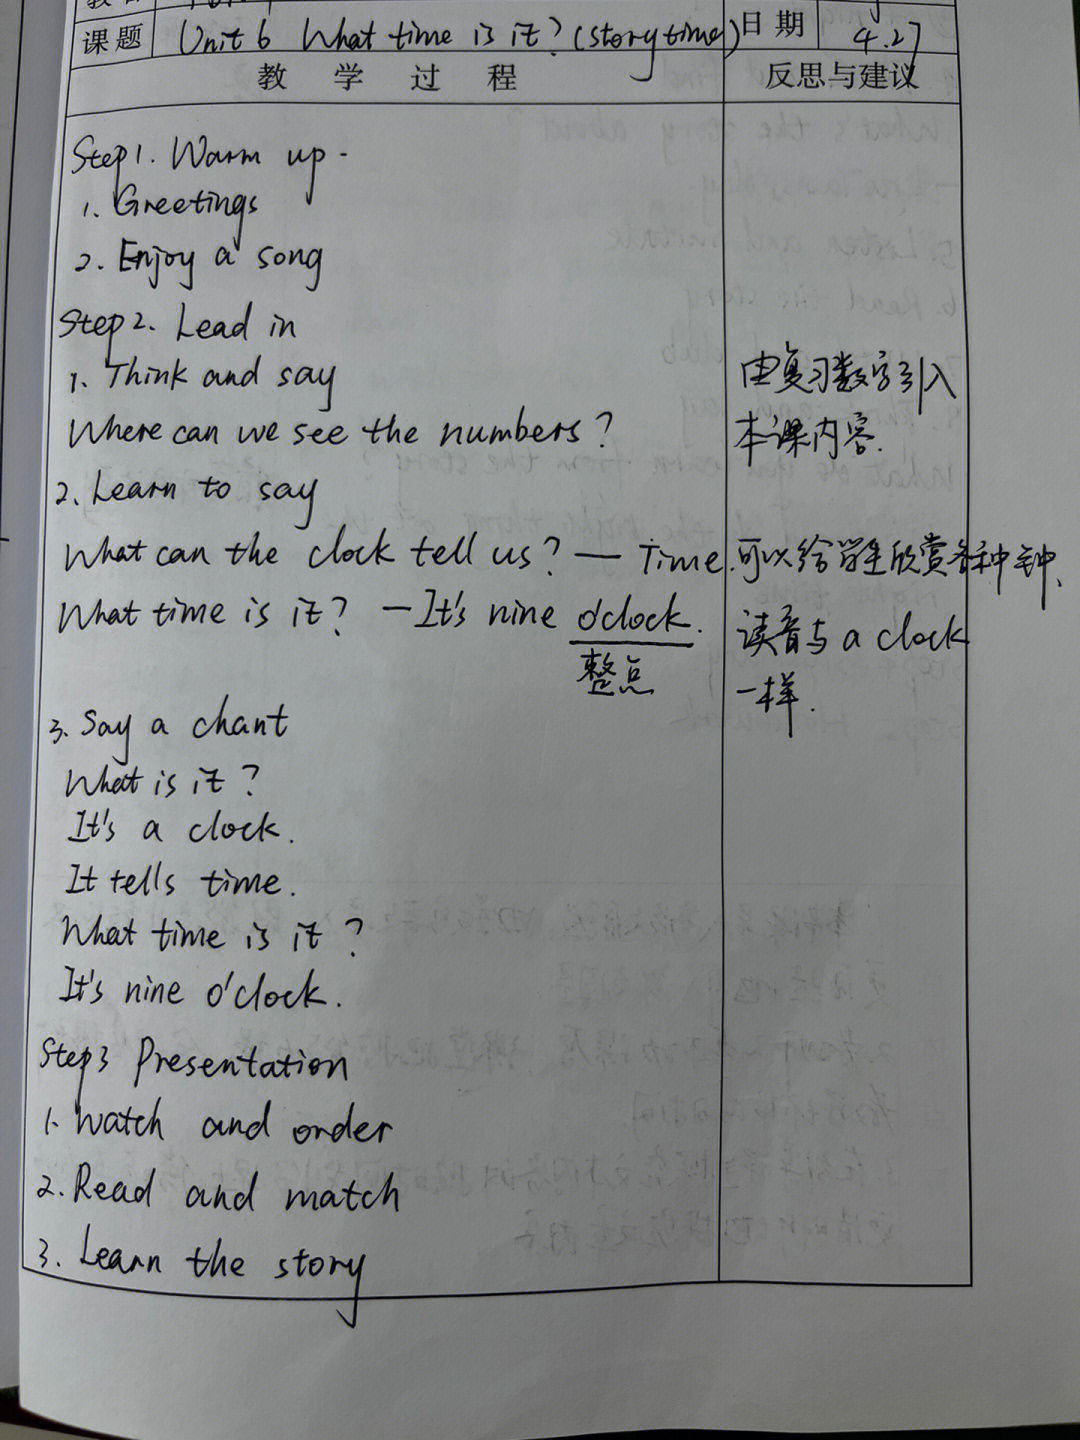 课题 Unit 6 What time is it? (story time) 日期 4.27
教 学 过 程 反思与建议
Step1. Warm up.
1. Greetings
2. Enjoy a song
Step2. Lead in
1. Think and say
由复习数字引入
Where can we see the numbers?
本课内容.
2. Learn to say
What can the clock tell us? — Time.
可以给学生欣赏各种钟.
What time is it? — It's nine o'clock.
整点
读音与 a clock
一样.
3. Say a chant
What is it?
It's a clock.
It tells time.
What time is it?
It's nine o'clock.
Step3 Presentation
1. Watch and order
2. Read and match
3. Learn the story